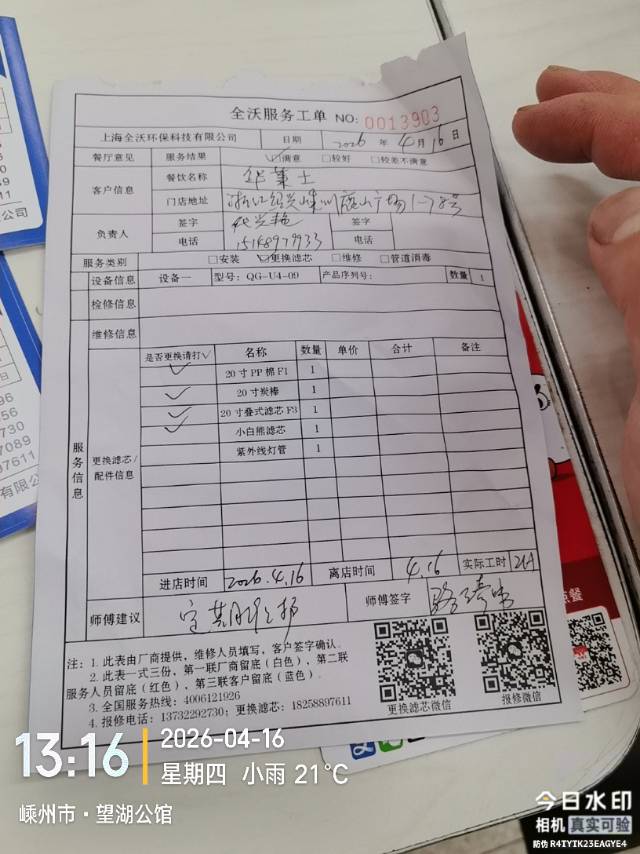 全沃服务工单 NO: 0013903
上海全沃环保科技有限公司 日期 2026 年 4 月 16 日
餐厅意见 服务结果 ☑满意 □较好 □较差不满意
客户信息 餐饮名称 华莱士
门店地址 浙江绍兴嵊州鹿山广场1-78号
负责人 签字 签字
电话 电话
服务类别 □安装 ☑更换滤芯 □维修 □管道消毒
设备信息 设备一 型号: QG-U4-09 产品序列号: 数量 1
检修信息
维修信息
服务信息
更换滤芯/配件信息
是否更换请打√ 名称 数量 单价 合计 备注
✓ 20寸PP棉F1 1
✓ 20寸炭棒 1
✓ 20寸叠式滤芯F3 1
✓ 小白熊滤芯 1
紫外线灯管 1
进店时间 2026.4.16 离店时间 4.16 实际工时
师傅建议 师傅签字
注: 1. 此表由厂商提供,维修人员填写,客户签字确认。
2. 此表一式三份,第一联厂商留底(白色),第二联
服务人员留底(红色),第三联客户留底(蓝色)。
3. 全国服务热线: 4006121926
4. 报修电话: 13732292730; 更换滤芯: 18258897611
更换滤芯微信 报修微信
公司
7089
97611
有限公
点餐
13:16
2026-04-16
星期四 小雨 21°C
嵊州市·望湖公馆
今日水印
相机 真实可验
防伪 R4IYIK23EAGYE4